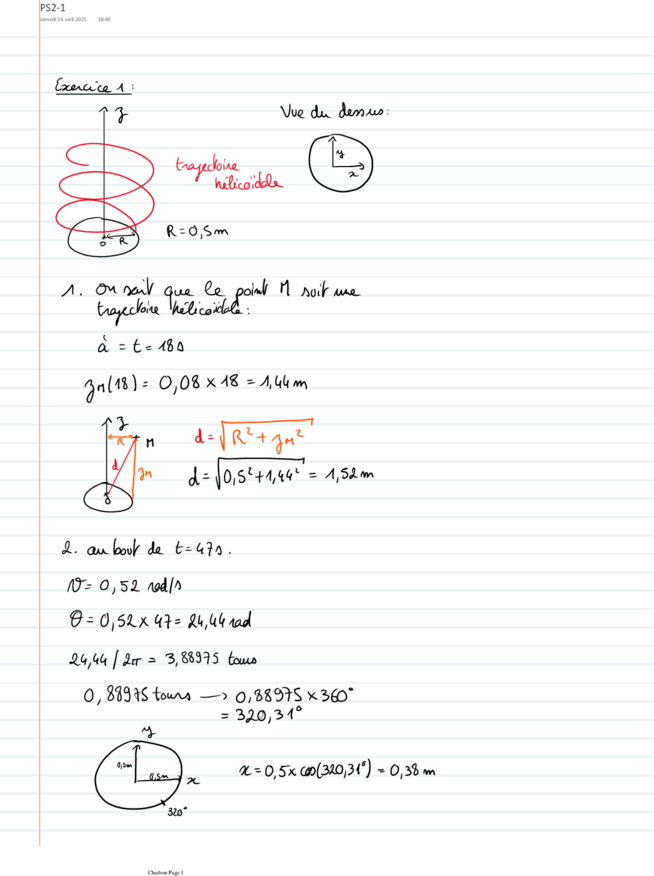 PS2-1
samedi 26 avril 2025 18:40
Exercice 1 :
z
Vue du dessus :
y
x
trajectoire
hélicoïdale
O R
R = 0,5m
1. On sait que le point M suit une
trajectoire hélicoïdale :
à = t = 18s
zM(18) = 0,08 × 18 = 1,44 m
z
R M
d
zM
O
d = √R² + zM²
d = √0,5² + 1,44² = 1,52 m
2. au bout de t = 47s.
v = 0,52 rad/s
θ = 0,52 × 47 = 24,44 rad
24,44 / 2π = 3,88975 tours
0,88975 tours → 0,88975 × 360°
= 320,31°
y
0,5m
0,5m x
320°
x = 0,5 × cos(320,31°) = 0,38 m
Charbon Page 1